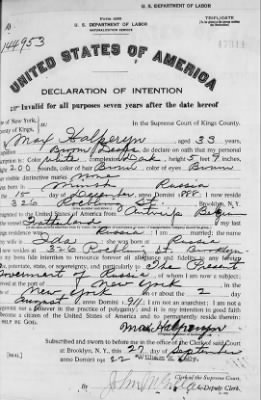 U. S. DEPARTMENT OF LABOR
TRIPLICATE
No. 144953
U. S. DEPARTMENT OF LABOR
NATURALIZATION SERVICE
UNITED STATES OF AMERICA
DECLARATION OF INTENTION
Invalid for all purposes seven years after the date hereof
of New York,
In the Supreme Court of Kings County.
County of Kings,
Max Halperyn, aged 33 years,
occupation, do declare on oath that my personal
description is: Color white, complexion Dark, height 5 feet 9 inches,
200 pounds, color of hair Brown, color of eyes Brown
visible distinctive marks None
Minsk Russia
15 day of December, anno Domini 1888; I now reside
326 Roebling St.
emigrated to the United States of America from Antwerp Belgium
; my last
residence was Russia; I am married; the name
of my wife is Ida; she was Russia
now 326 Roebling St. Brooklyn
It is my bona fide intention to renounce forever all allegiance and fidelity to any foreign
state, or sovereignty, and particularly to The Present
Government of Russia, of whom I am now a subject;
arrived at the port of New York
New York on or about the 2 day
August, anno Domini 1911; I am not an anarchist; I am not a
polygamist nor a believer in the practice of polygamy; and it is my intention in good faith
to become a citizen of the United States of America and to permanently reside therein:
HELP ME GOD.
Max Halperyn
Subscribed and sworn to before me in the office of the Clerk of said Court
at Brooklyn, N. Y., this 27 day of September
anno Domini 1922
[SEAL]
Clerk of the Supreme Court.
Deputy Clerk.